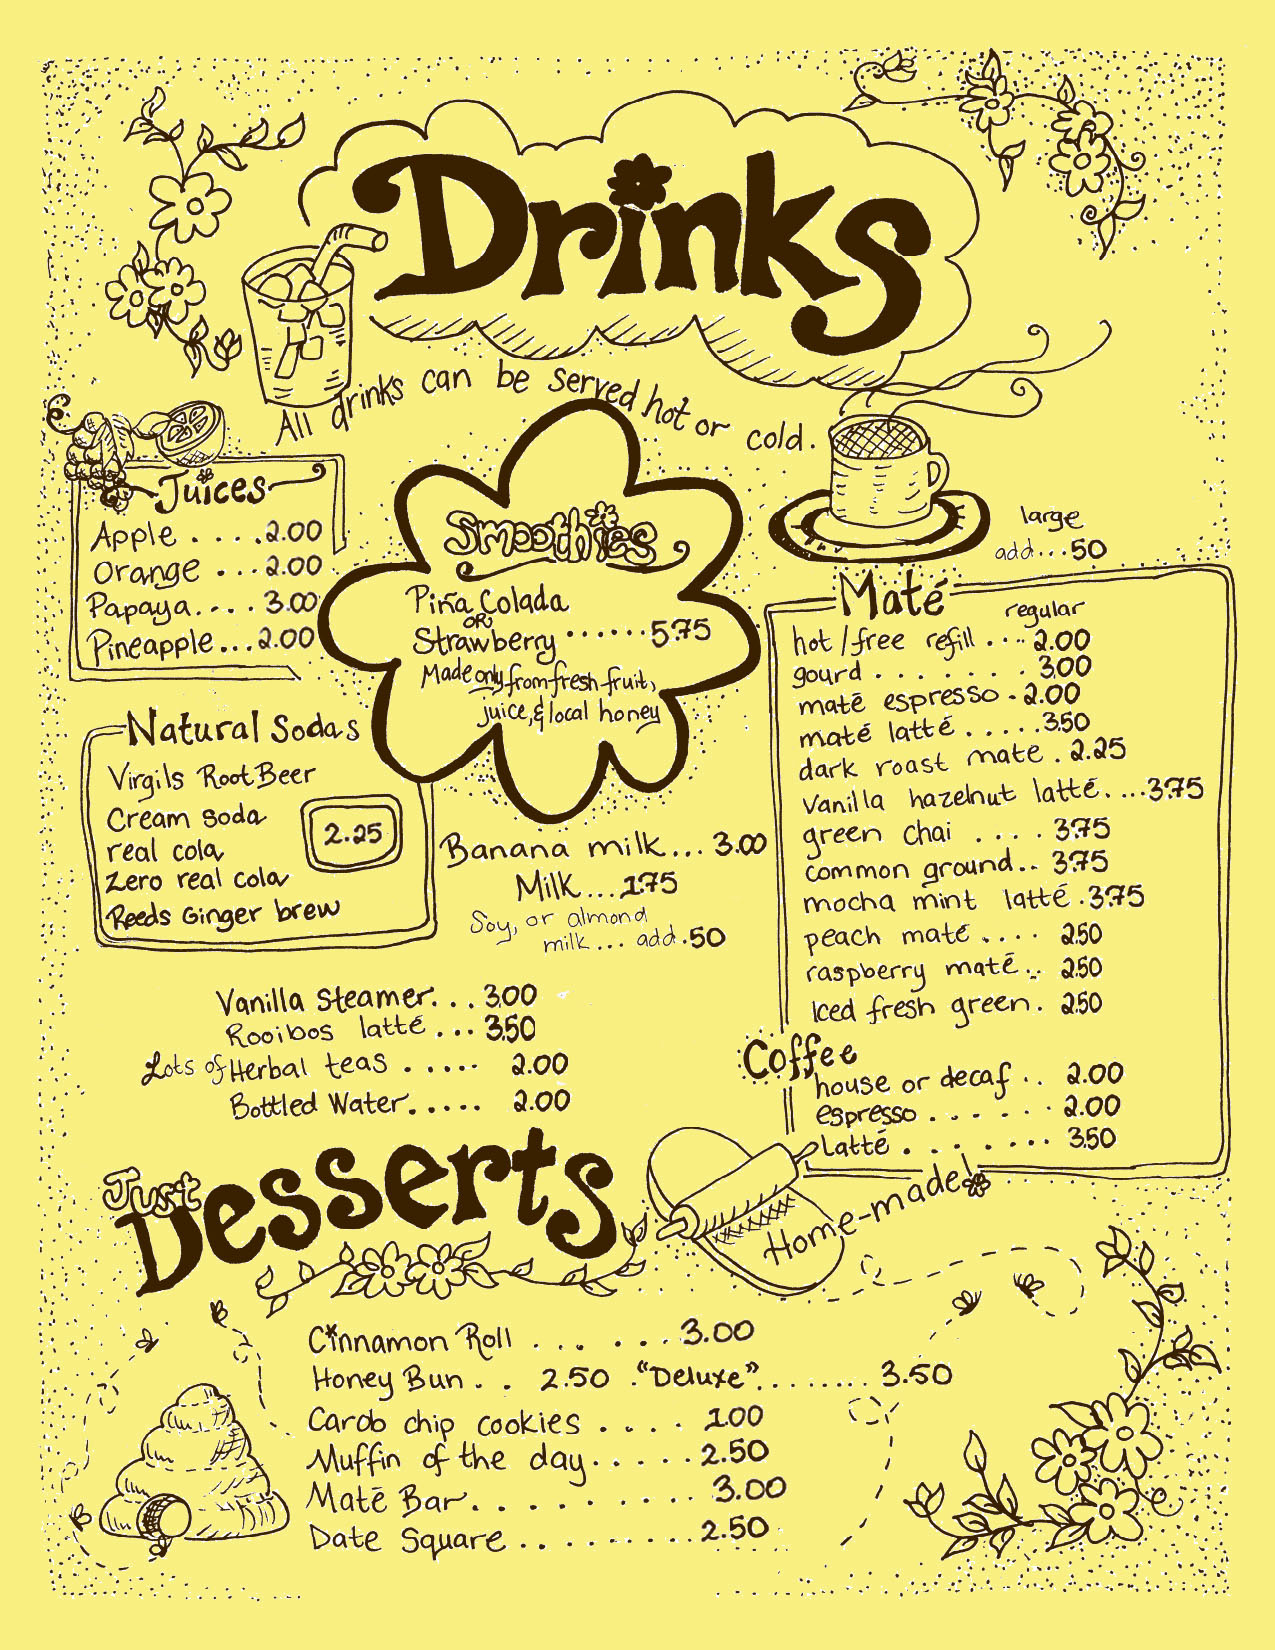 Drinks
All drinks can be served hot or cold.
Juices
Apple . . . . . 2.00
Orange . . . 2.00
Papaya. . . . 3.00
Pineapple . . . 2.00
Smoothies
Piña Colada
OR
Strawberry . . . . . . 5.75
Made only from fresh fruit,
juice, & local honey
large
add . . . .50
Maté
regular
hot / free refill . . . 2.00
gourd . . . . . . . 3.00
maté espresso . 2.00
maté latté . . . . . 3.50
dark roast mate . 2.25
vanilla hazelnut latté. . . . 3.75
green chai . . . . 3.75
common ground . . 3.75
mocha mint latté . 3.75
peach maté . . . . 2.50
raspberry maté . . 2.50
Iced fresh green . 2.50
Coffee
house or decaf . . 2.00
espresso . . . . . . 2.00
Latté . . . . . . . 3.50
Natural Sodas
Virgils Root Beer
Cream Soda
real cola
zero real cola
Reeds Ginger brew
2.25
Banana milk . . . 3.00
Milk . . . 1.75
Soy, or almond
milk . . . add .50
Vanilla Steamer. . . 3.00
Rooibos latté . . . 3.50
Lots of Herbal teas . . . . . 2.00
Bottled Water. . . . . 2.00
Just
Desserts
Home-made!
Cinnamon Roll . . . . . . 3.00
Honey Bun . . 2.50 . "Deluxe" . . . . . . . . 3.50
Carob chip cookies . . . . 1.00
Muffin of the day . . . . . 2.50
Maté Bar. . . . . . . . . . 3.00
Date Square . . . . . . . . . 2.50